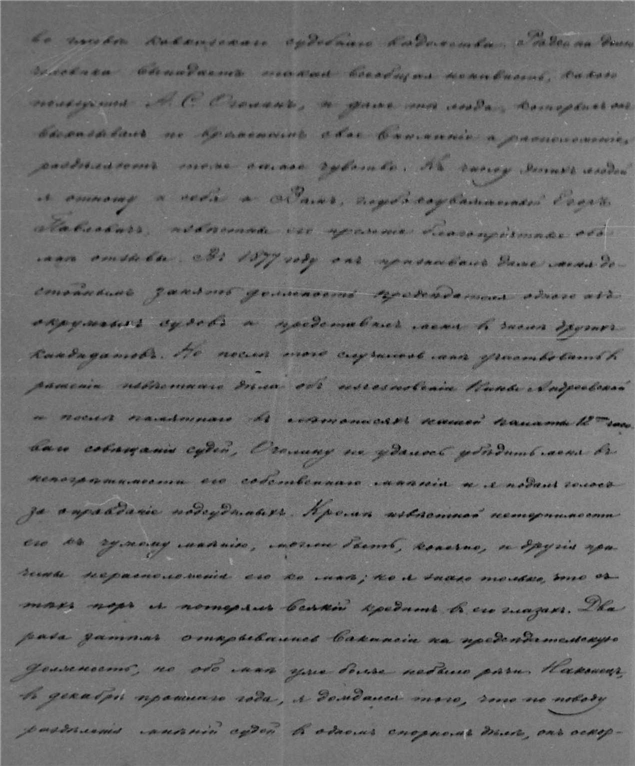 во главѣ кавказскаго судебнаго вѣдомства. Рѣдко на долю
человѣка выпадаетъ такая всеобщая ненависть, какою
пользуется А. С. Оголинъ, и даже тѣ люди, которымъ онъ
выказывалъ по временамъ свое вниманіе и расположеніе,
раздѣляютъ тоже самое чувство. Къ числу этихъ людей
я отношу и себя и Вамъ, глубокоуважаемый Егоръ
Павловичъ, извѣстны его прежніе благопріятные обо
мнѣ отзывы. Въ 1877 году онъ признавалъ даже меня до-
стойнымъ занять должность предсѣдателя одного изъ
окружныхъ судовъ и представилъ меня в числѣ другихъ
кандидатовъ. Но послѣ того случилось мнѣ участвовать в
рѣшеніи извѣстнаго дѣла объ изчезновеніи Нины Андреевской
и послѣ памятнаго въ лѣтописяхъ нашей палаты 12ти часо-
ваго совѣщанія судей, Оголину не удалось убѣдить меня въ
непогрѣшимости его собственнаго мнѣнія и я подалъ голосъ
за оправданіе подсудимыхъ. Кромѣ извѣстной нетерпимости
его къ чужому мнѣнію, могли быть, конечно, и другія при-
чины нерасположенія его ко мнѣ; но я знаю только, что съ
тѣхъ поръ я потерялъ всякій кредитъ в его глазахъ. Два
раза затѣмъ открывались вакансіи на предсѣдательскую
должность, но обо мнѣ уже болѣе небыло рѣчи. Наконецъ,
въ декабрѣ прошлаго года, я дождался того, что по поводу
раздѣленія мнѣній судей в одномъ спорномъ дѣлѣ, онъ оскор-